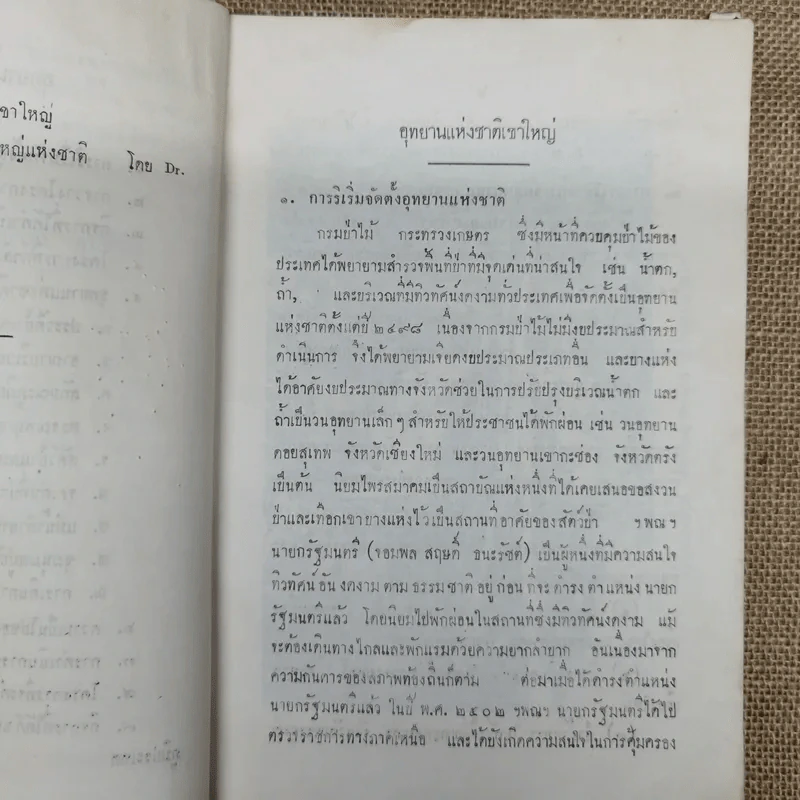 ขาใหญ่
หญ่แห่งชาติ โดย Dr.
อุทยานแห่งชาติเขาใหญ่
๑. การริเริ่มจัดตั้งอุทยานแห่งชาติ
กรมป่าไม้ กระทรวงเกษตร ซึ่งมีหน้าที่ควบคุมป่าไม้ของ
ประเทศได้พยายามสำรวจพื้นที่ป่าที่มีจุดเด่นที่น่าสนใจ เช่น น้ำตก,
ถ้ำ, และบริเวณที่มีทิวทัศน์งดงามทั่วประเทศเพื่อจัดตั้งเป็นอุทยาน
แห่งชาติตั้งแต่ปี ๒๔๙๘ เนื่องจากกรมป่าไม้ไม่มีงบประมาณสำหรับ
ดำเนินการ จึงได้พยายามเจียดงบประมาณประเภทอื่น และบางแห่ง
ได้อาศัยงบประมาณทางจังหวัดช่วยในการปรับปรุงบริเวณน้ำตก และ
ถ้ำเป็นวนอุทยานเล็กๆ สำหรับให้ประชาชนได้พักผ่อน เช่น วนอุทยาน
ดอยสุเทพ จังหวัดเชียงใหม่ และวนอุทยานเขากะช่อง จังหวัดตรัง
เป็นต้น นิยมไพรสมาคมเป็นสถาบันแห่งหนึ่งที่ได้เคยเสนอขอสงวน
ป่าและเทือกเขาบางแห่งไว้เป็นสถานที่อาศัยของสัตว์ป่า ฯพณฯ
นายกรัฐมนตรี (จอมพล สฤษดิ์ ธนะรัชต์) เป็นผู้หนึ่งที่มีความสนใจ
ทิวทัศน์ อัน งดงาม ตาม ธรรมชาติ อยู่ ก่อน ที่จะ ดำรง ตำ แหน่ง นายก
รัฐมนตรีแล้ว โดยนิยมไปพักผ่อนในสถานที่ซึ่งมีทิวทัศน์งดงาม แม้
จะต้องเดินทางไกลและพักแรมด้วยความยากลำบาก อันเนื่องมาจาก
ความกันดารของสภาพท้องถิ่นก็ตาม ต่อมาเมื่อได้ดำรงตำแหน่ง
นายกรัฐมนตรีแล้ว ในปี พ.ศ. ๒๕๐๒ ฯพณฯ นายกรัฐมนตรีได้ไป
ตรวจราชการทางภาคเหนือ และได้บังเกิดความสนใจในการคุ้มครอง